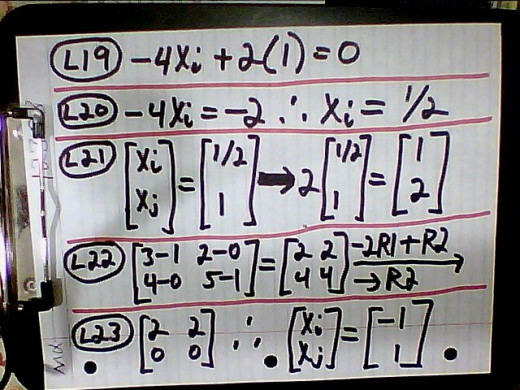 L19 -4Xi + 2(1) = 0
L20 -4Xi = -2 ∴ Xi = 1/2
L21 [Xi Xj] = [1/2 1] → 2 [1/2 1] = [1 2]
L22 [3-1 2-0 4-0 5-1] = [2 2 4 4] -2R1+R2 → R2
L23 [2 2 0 0] ∴ [Xi Xj] = [-1 1]